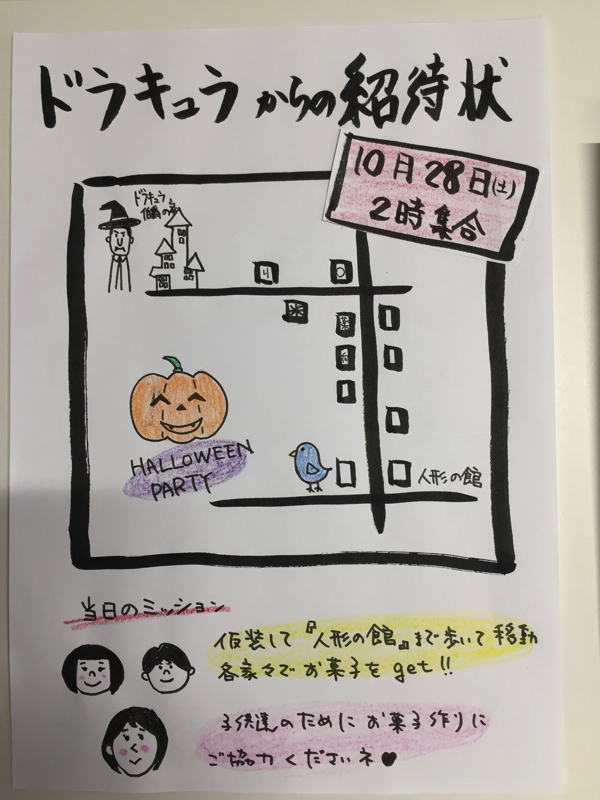 ドラキュラからの紹待状
10月28日(土)
2時集合
ドラキュラ
伯爵の家
人形の館
HALLOWEEN
PARTY
当日のミッション
仮装して『人形の館』まで歩いて移動
各家々でお菓子をget!!
子供達のためにお菓子作りに
ご協力くださいネ♥